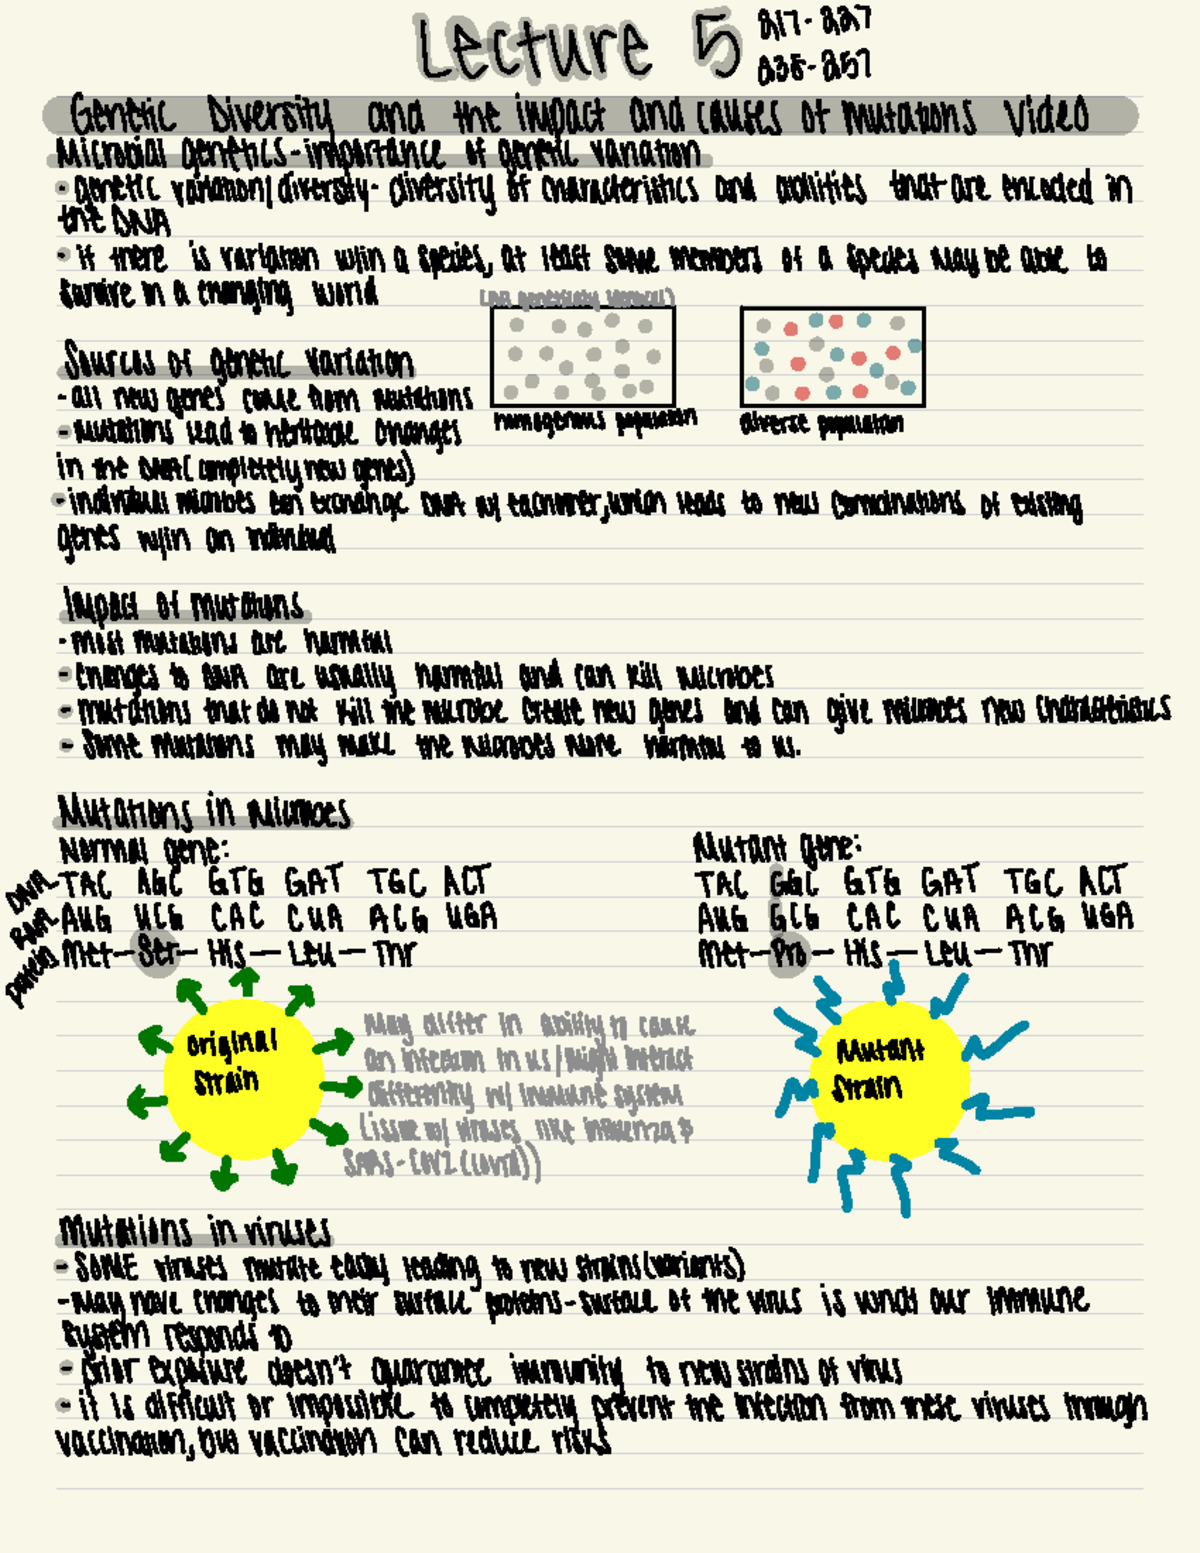 Lecture 5
217-227
238-257
Genetic Diversity and the impact and causes of mutations Video
Microbial genetics-importance of genetic variation
- genetic variation/diversity- diversity of characteristics and abilities that are encoded in
the DNA
- if there is variation w/in a species, at least some members of a species may be able to
survive in a changing world
(all genetically identical)
Sources of genetic variation
- all new genes come from mutations
homogenous population
diverse population
- Mutations lead to heritable changes
in the DNA (completely new genes)
- individual microbes can exchange DNA w/ eachother, which leads to new combinations of existing
genes w/in an individual
Impact of mutations
- most mutations are harmful
- Changes to DNA are usually harmful and can kill microbes
- mutations that do not kill the microbe create new genes and can give microbes new characteristics
- Some mutations may make the microbes more harmful to us.
Mutations in Microbes
Normal gene:
Mutant gene:
DNA TAC AGC GTG GAT TGC ACT
TAC GGC GTG GAT TGC ACT
RNA AUG UCG CAC CUA ACG UGA
AUG GCG CAC CUA ACG UGA
protein Met-Ser-His-Leu-Thr
Met-Pro-His-Leu-Thr
original
strain
May differ in ability to cause
an infection in us/might interact
differently w/ immune system
(issue w/ viruses like influenza &
SARS-COV2 (COVID))
Mutant
Strain
Mutations in viruses
- SOME viruses mutate easily leading to new strains (variants)
- May have changes to their surface proteins-surface of the virus is what our immune
system responds to
- prior exposure doesn't guarantee immunity to new strains of virus
- it is difficult or impossible to completely prevent the infection from these viruses through
vaccination, but vaccination can reduce risks